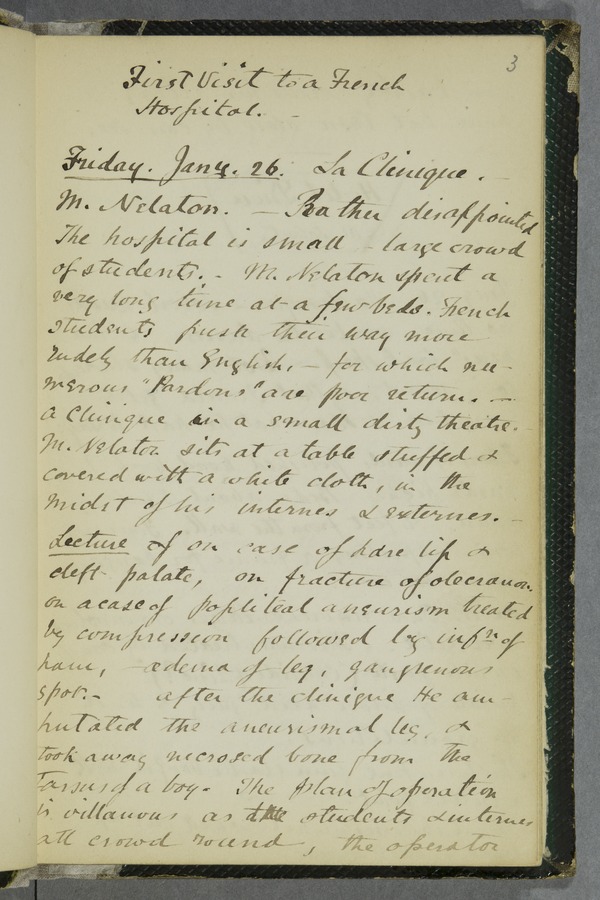 3
First Visit to a French
Hospital. -
Friday. Jany. 26. La Clinique. -
M. Nelaton. - Rather disappointed
The hospital is small - large crowd
of students. - M. Nelaton spent a
very long time at a few beds. French
students push their way more
rudely than English, - for which nu-
merous "Pardons" are poor return. -
A Clinique in a small dirty theatre. -
M. Nelaton sits at a table stuffed &
covered with a white cloth, in the
midst of his internes & externes. -
Lecture of on case of hare lip &
cleft palate, on fracture of olecranon,
on a case of popliteal aneurism treated
by compression followed by infn of
ham, - œdema of leg, gangrenous
spot. - after the clinique He am-
putated the aneurismal leg, &
took away necrosed bone from the
Tarsus of a boy. The plan of operation
is villanous as the students & internes
all crowd round, the operator